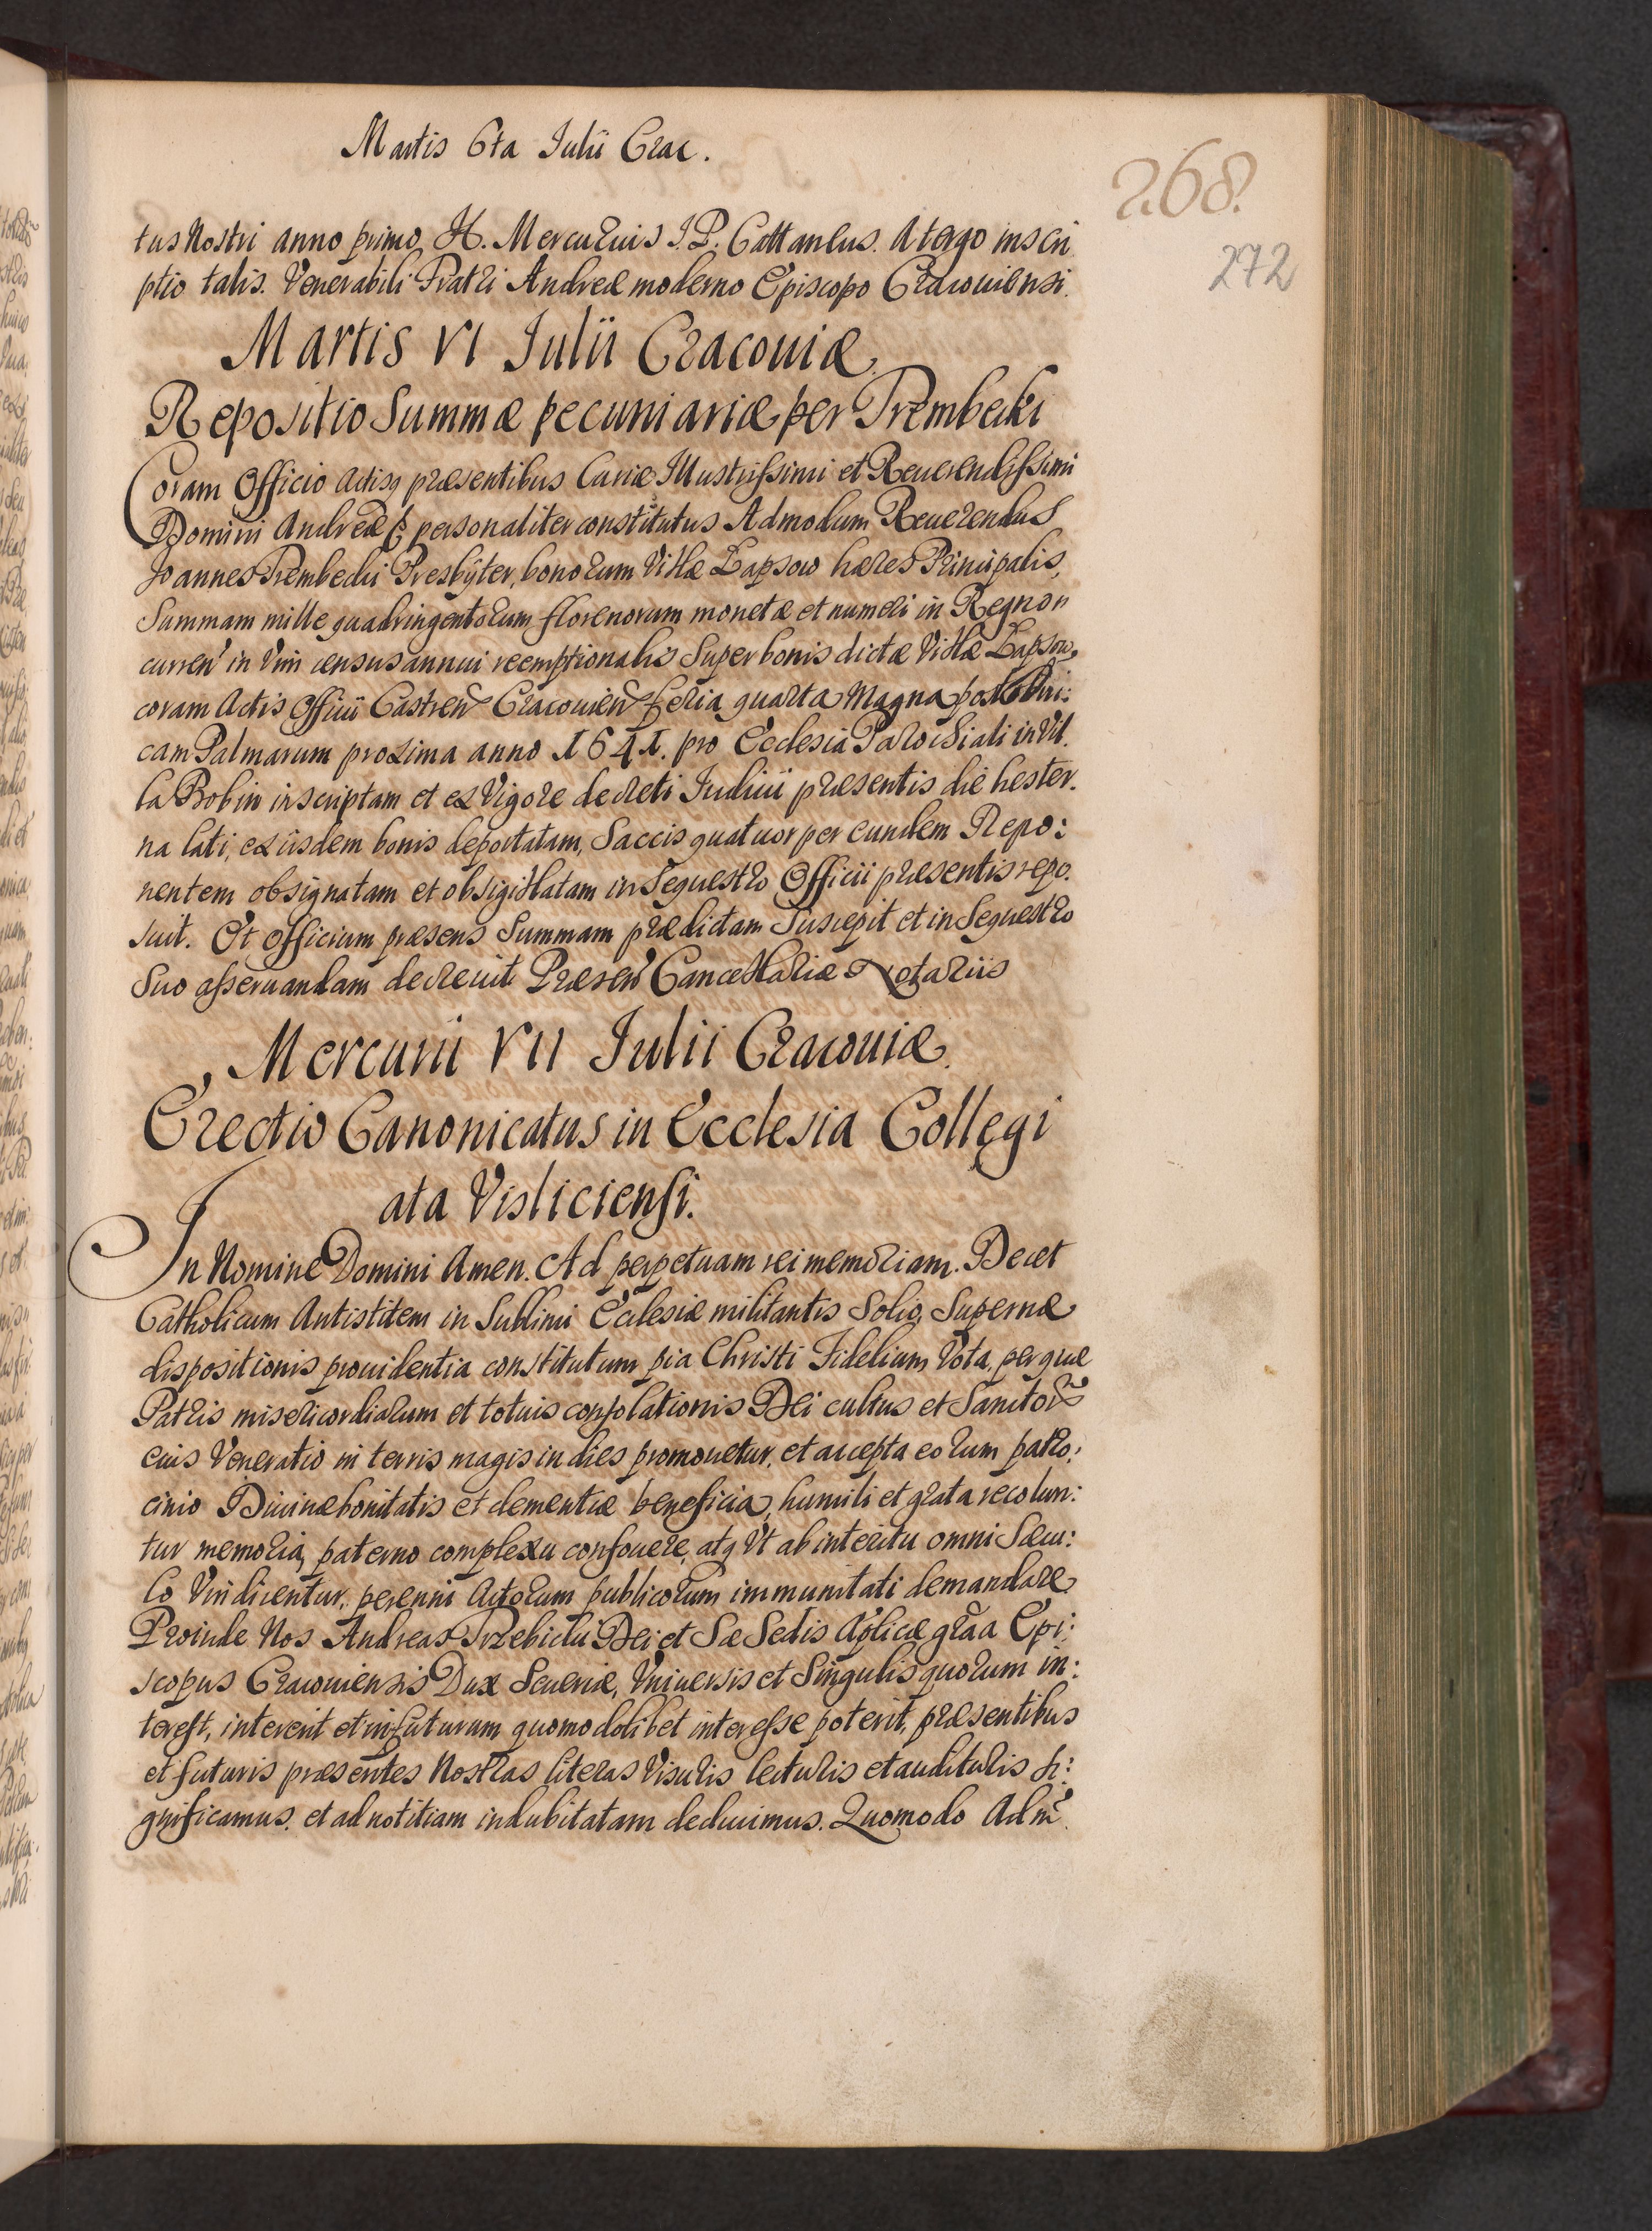 Martis 6ta Iulii Crac.
268.
272
tus Nostri anno primo H. Mercurius I. P. Cattaneus. A tergo inscri
ptio talis. Venerabili Fratri Andreæ moderno Episcopo Cracouiensi.
Martis VI Iulii Cracouiæ
Repositio Summæ pecuniariæ per Trembecki
Coram Officio Actisq præsentibus Curiæ Illustrissimi et Reuerendissimi
Domini Andreæ personaliter constitutus Admodum Reuerendus
Joannes Trembecki Presbyter, bonorum Villæ Łapsow hæres Principalis,
Summam mille quadringentorum florenorum monetæ et numeri in Regno
curren in Vim census annui reemptionalis Super bonis dictæ Villæ Łapsow,
coram Actis Officii Castren Cracouien feria quarta Magna post Domi:
cam Palmarum proxima anno 1641. pro Ecclesia Parochiali in Vil.
la Bobin inscriptam et ex Vigore decreti Iudicii præsentis die hester.
na lati, ex iisdem bonis deportatam, Saccis quatuor per eundem Repo:
nentem obsignatam et obsigillatam in Sequestro Officii præsentis repo.
suit. Et Officium præsens Summam prædictam Suscepit et in Sequestro
Suo asseruandam decreuit Præsen Cancellariæ Notariis
Mercurii VII Iulii Cracouiæ.
Erectio Canonicatus in Ecclesia Collegi
ata Visliciensi.
In Nomine Domini Amen. Ad perpetuam rei memoriam. Decet
Catholicum Antistitem in Sublimi Ecclesiæ militantis Solio, Supernæ
dispositionis prouidentia constitutum, pia Christi Fidelium Vota, per quæ
Patris misericordiarum et totius consolationis Dei cultus et Sanctor
eius Veneratio in terris magis in dies promouetur, et accepta eorum patro:
cinio Diuinæ bonitatis et clementiæ beneficia, humili et grata recolun:
tur memoria, paterno complexu confouere, atq Vt ab interitu omni Sæcu:
lo Vindicentur, perenni Actorum publicorum immunitati demandare,
Proinde Nos Andreas Trzebicki Dei et Sæ Sedis Aplicæ grãa Epi:
scopus Cracouiensis Dux Seueriæ, Vniuersis et Singulis quorum in:
terest, intererit et in futurum quomodolibet interesse poterit, præsentibus
et futuris præsentes Nostras literas Visuris lecturis et audituris si:
gnificamus. et ad notitiam indubitatam deducimus. Quomodo Adm